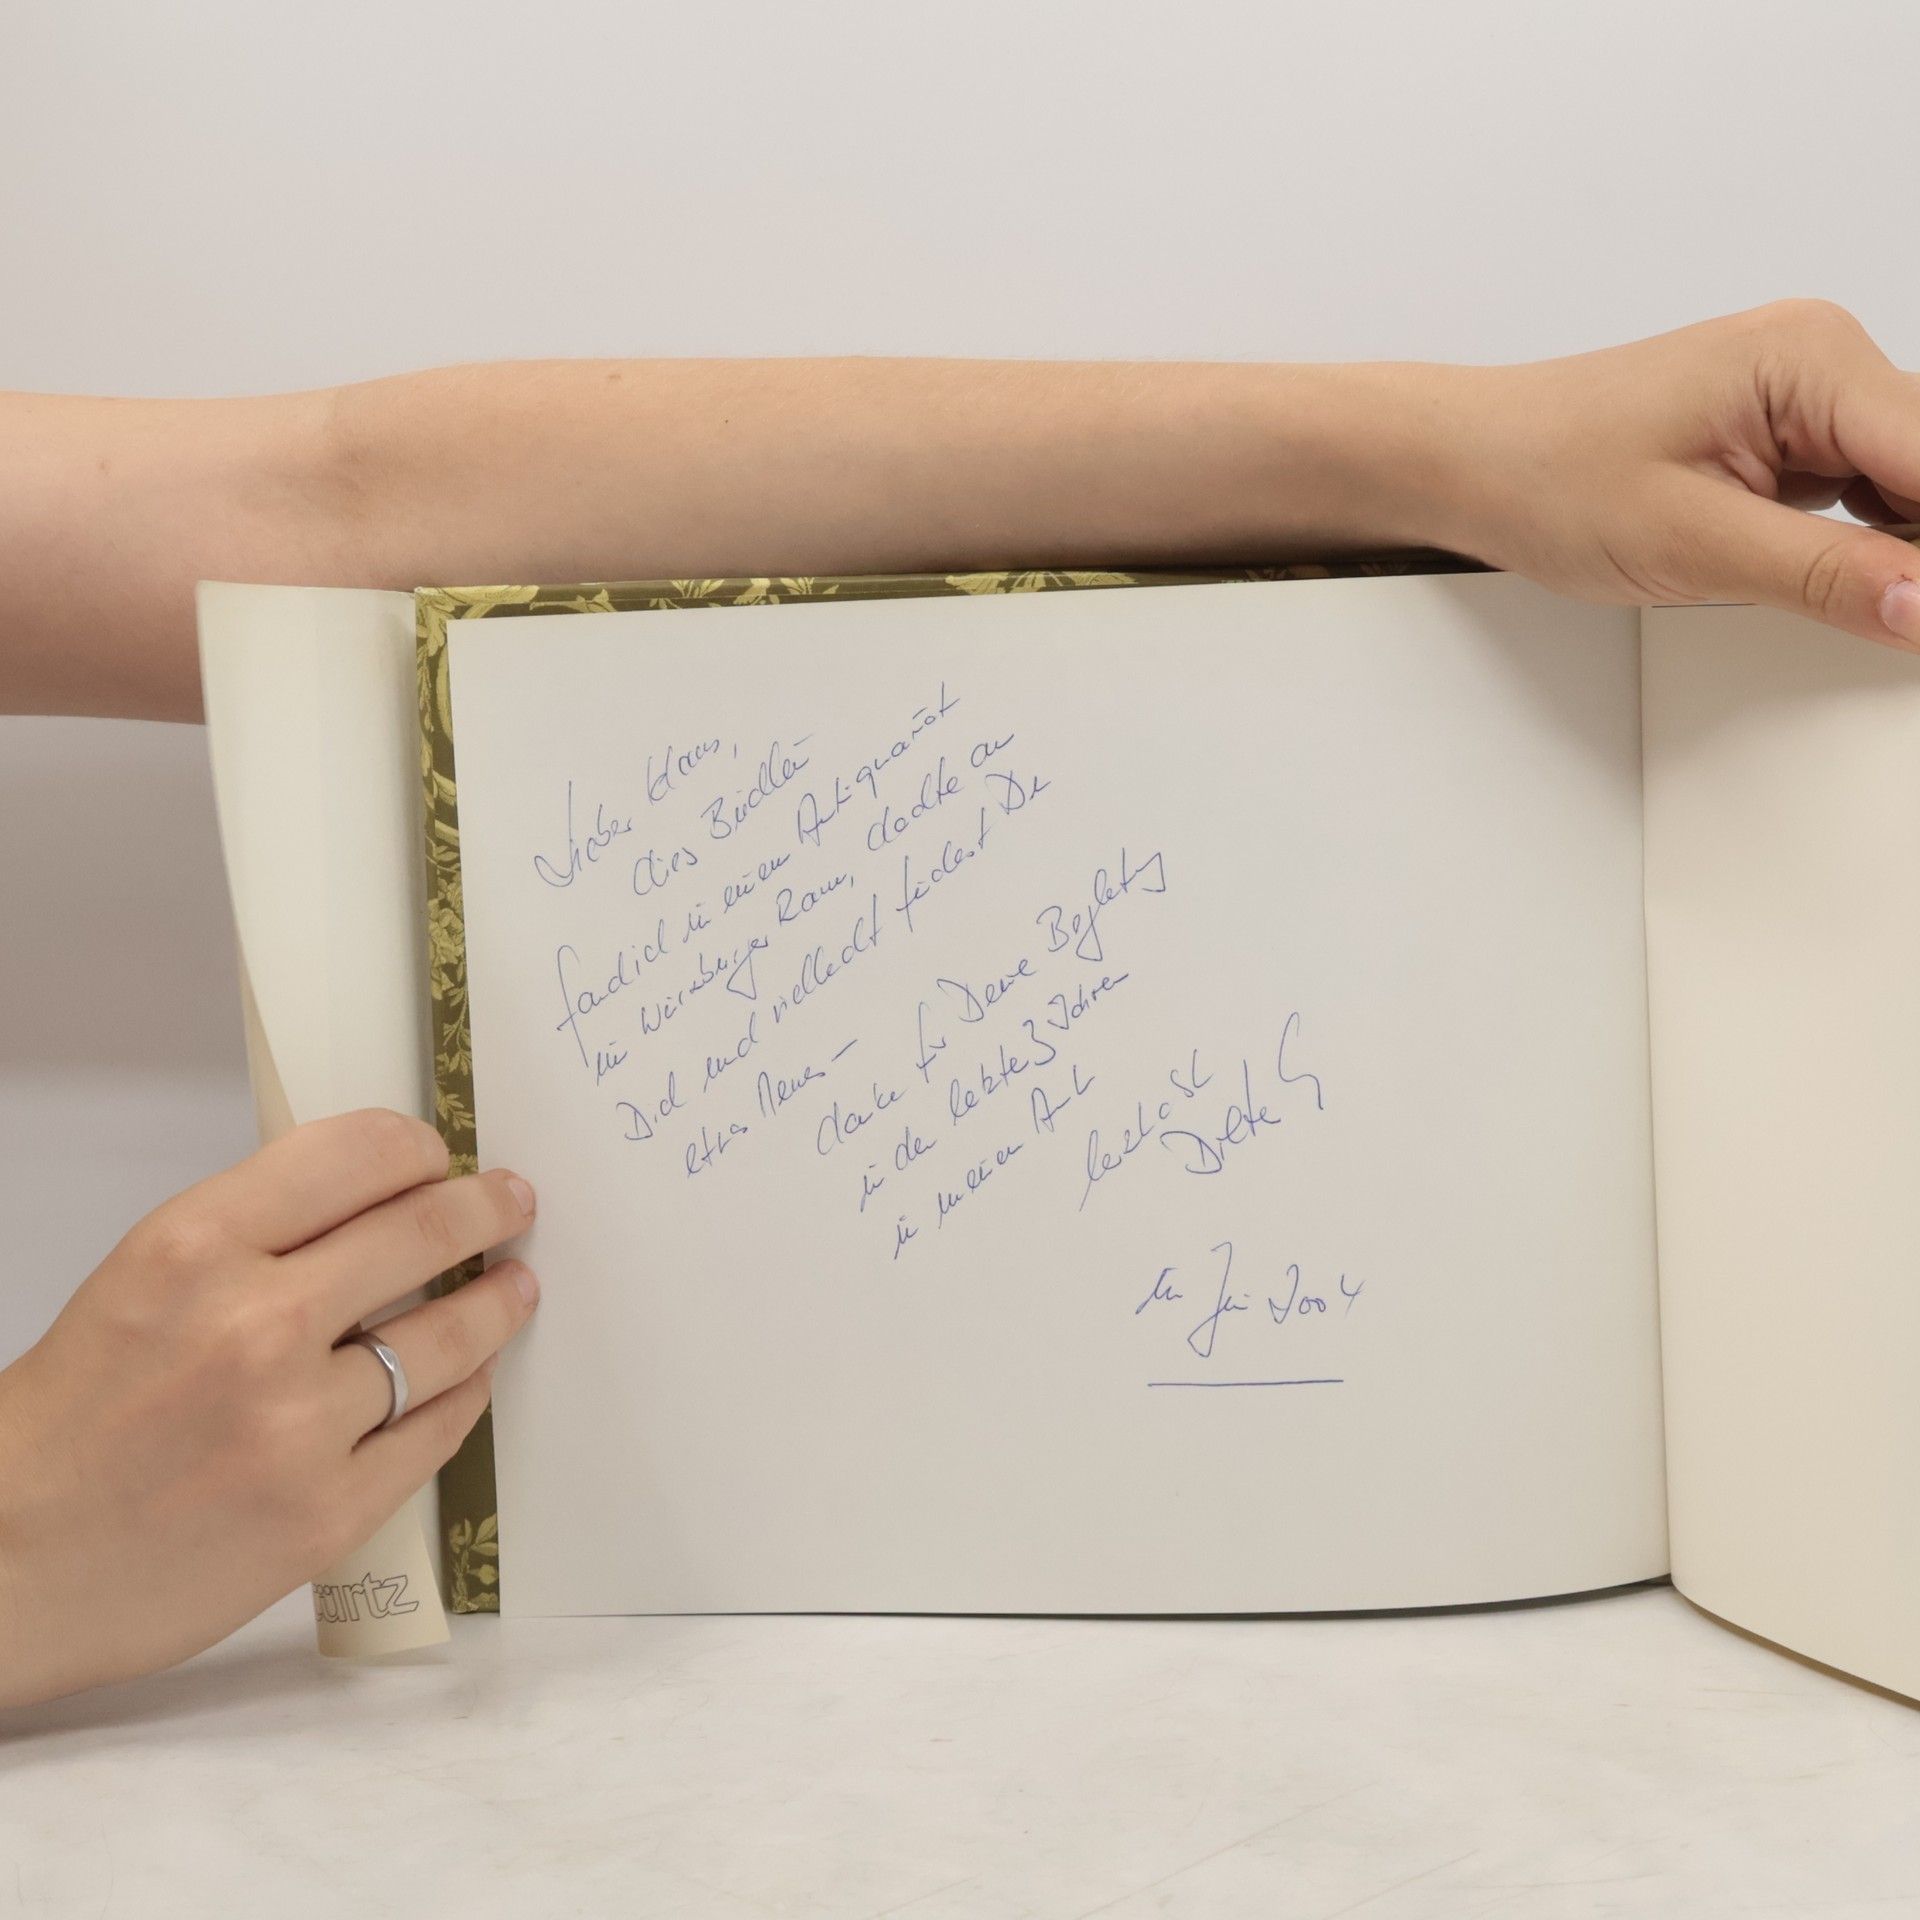 Lieber Klaus,
dies Büchlein
fand ich in einem Antiquariat
im Würzburger Raum, dachte an
Dich und vielleicht findest Du
etwas Neues –
danke für Deine Begleitung
in den letzten 3 Jahren
in meinem Amt
herzlichst
Dieter G
im Juni 2004
ürtz